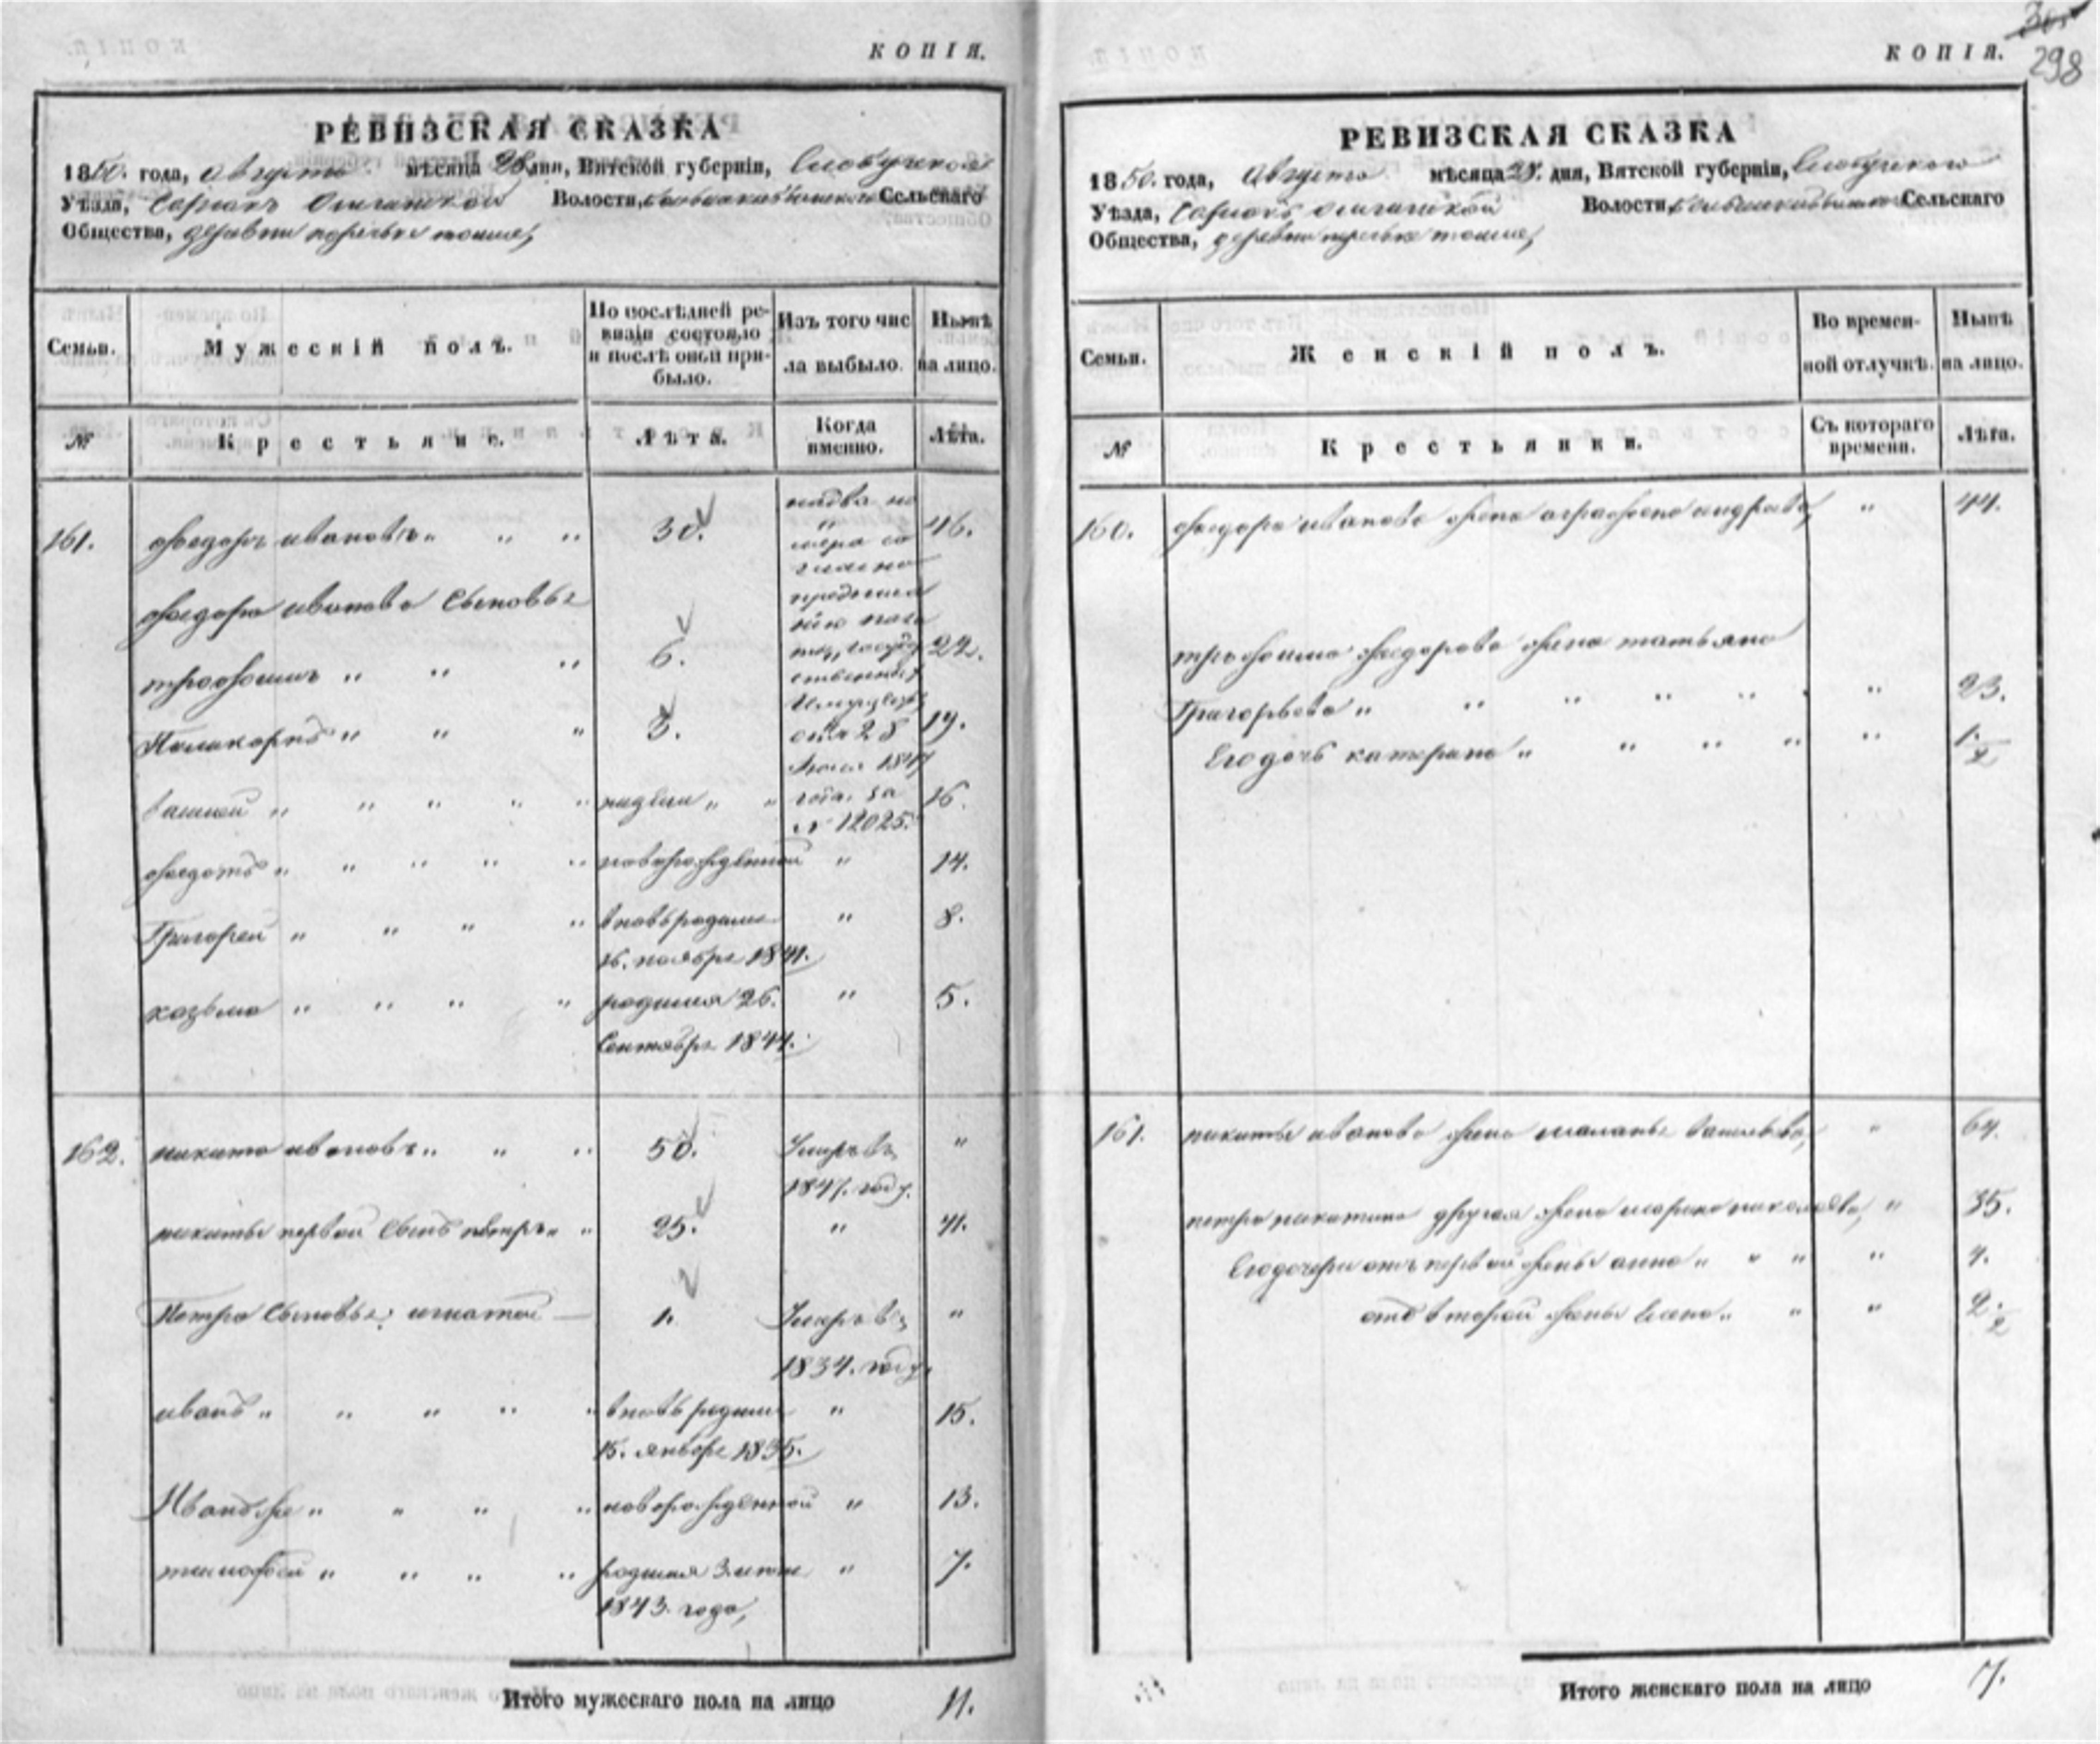 КОПІЯ.
РЕВИЗСКАЯ СКАЗКА
1850. года, августа мѣсяца 28 дня, Вятской губерніи,
Уѣзда, Волости, Сельскаго
Общества, деревни
Семьи. Мужескій полъ. По послѣдней ревизіи состояло и послѣ оной прибыло. Изъ того числа выбыло. Нынѣ на лицо.
№ Крестьяне. Лѣта. Когда именно. Лѣта.
161. Ѳедоръ ивановъ " " " 30. надва но 46.
мера со
гласно
Ѳедора иванова Сыновье предписа
нію пала
троѳимъ " " " 6. ты государ 22.
ственныхъ
Имуществъ
Поликарпъ " " " 3. отъ 28 19.
Июля 1847
василей " " " " " недели " " года. за 16.
№ 12025.
Ѳедотъ " " " " " новорожденной " 14.
Григорей " " " " вновьродился " 8.
16. ноября 1841.
козьма " " " " родился 26. " 5.
Сентября 1844.
162. никита ивановъ " " " 50. Умръ въ "
1847. году.
никиты первой Сынъ петръ " " 25. " 41.
Петра Сыновье: игнатей — 1. Умръ въ "
1834. году.
иванъ " " " " " вновь родился " 15.
15. января 1835.
Иванъ же " " " " новорожденной " 13.
тимофей " " " " родился 3. " 7.
1843. года,
Итого мужескаго пола на лицо 11.
КОПІЯ.
298
РЕВИЗСКАЯ СКАЗКА
1850. года, Августа мѣсяца 28. дня, Вятской губерніи,
Уѣзда, Волости, Сельскаго
Общества, деревни
Семьи. Женскій полъ. Во временной отлучкѣ. Нынѣ на лицо.
№ Крестьянки. Съ котораго времени. Лѣта.
160. Ѳедора иванова жена аграфена " 44.
троѳима Ѳедорова жена татьяна
Григорьева " " " " " " " 23.
Его дочь катерина " " " " " 1.½
161. никиты иванова жена маланья васильева, " 64.
петра никитина другая жена марина николаева, " 35.
Его дочери отъ первой жены анна " " " " 4.
отъ второй жены " " " 2.½
Итого женскаго пола на лицо 7.